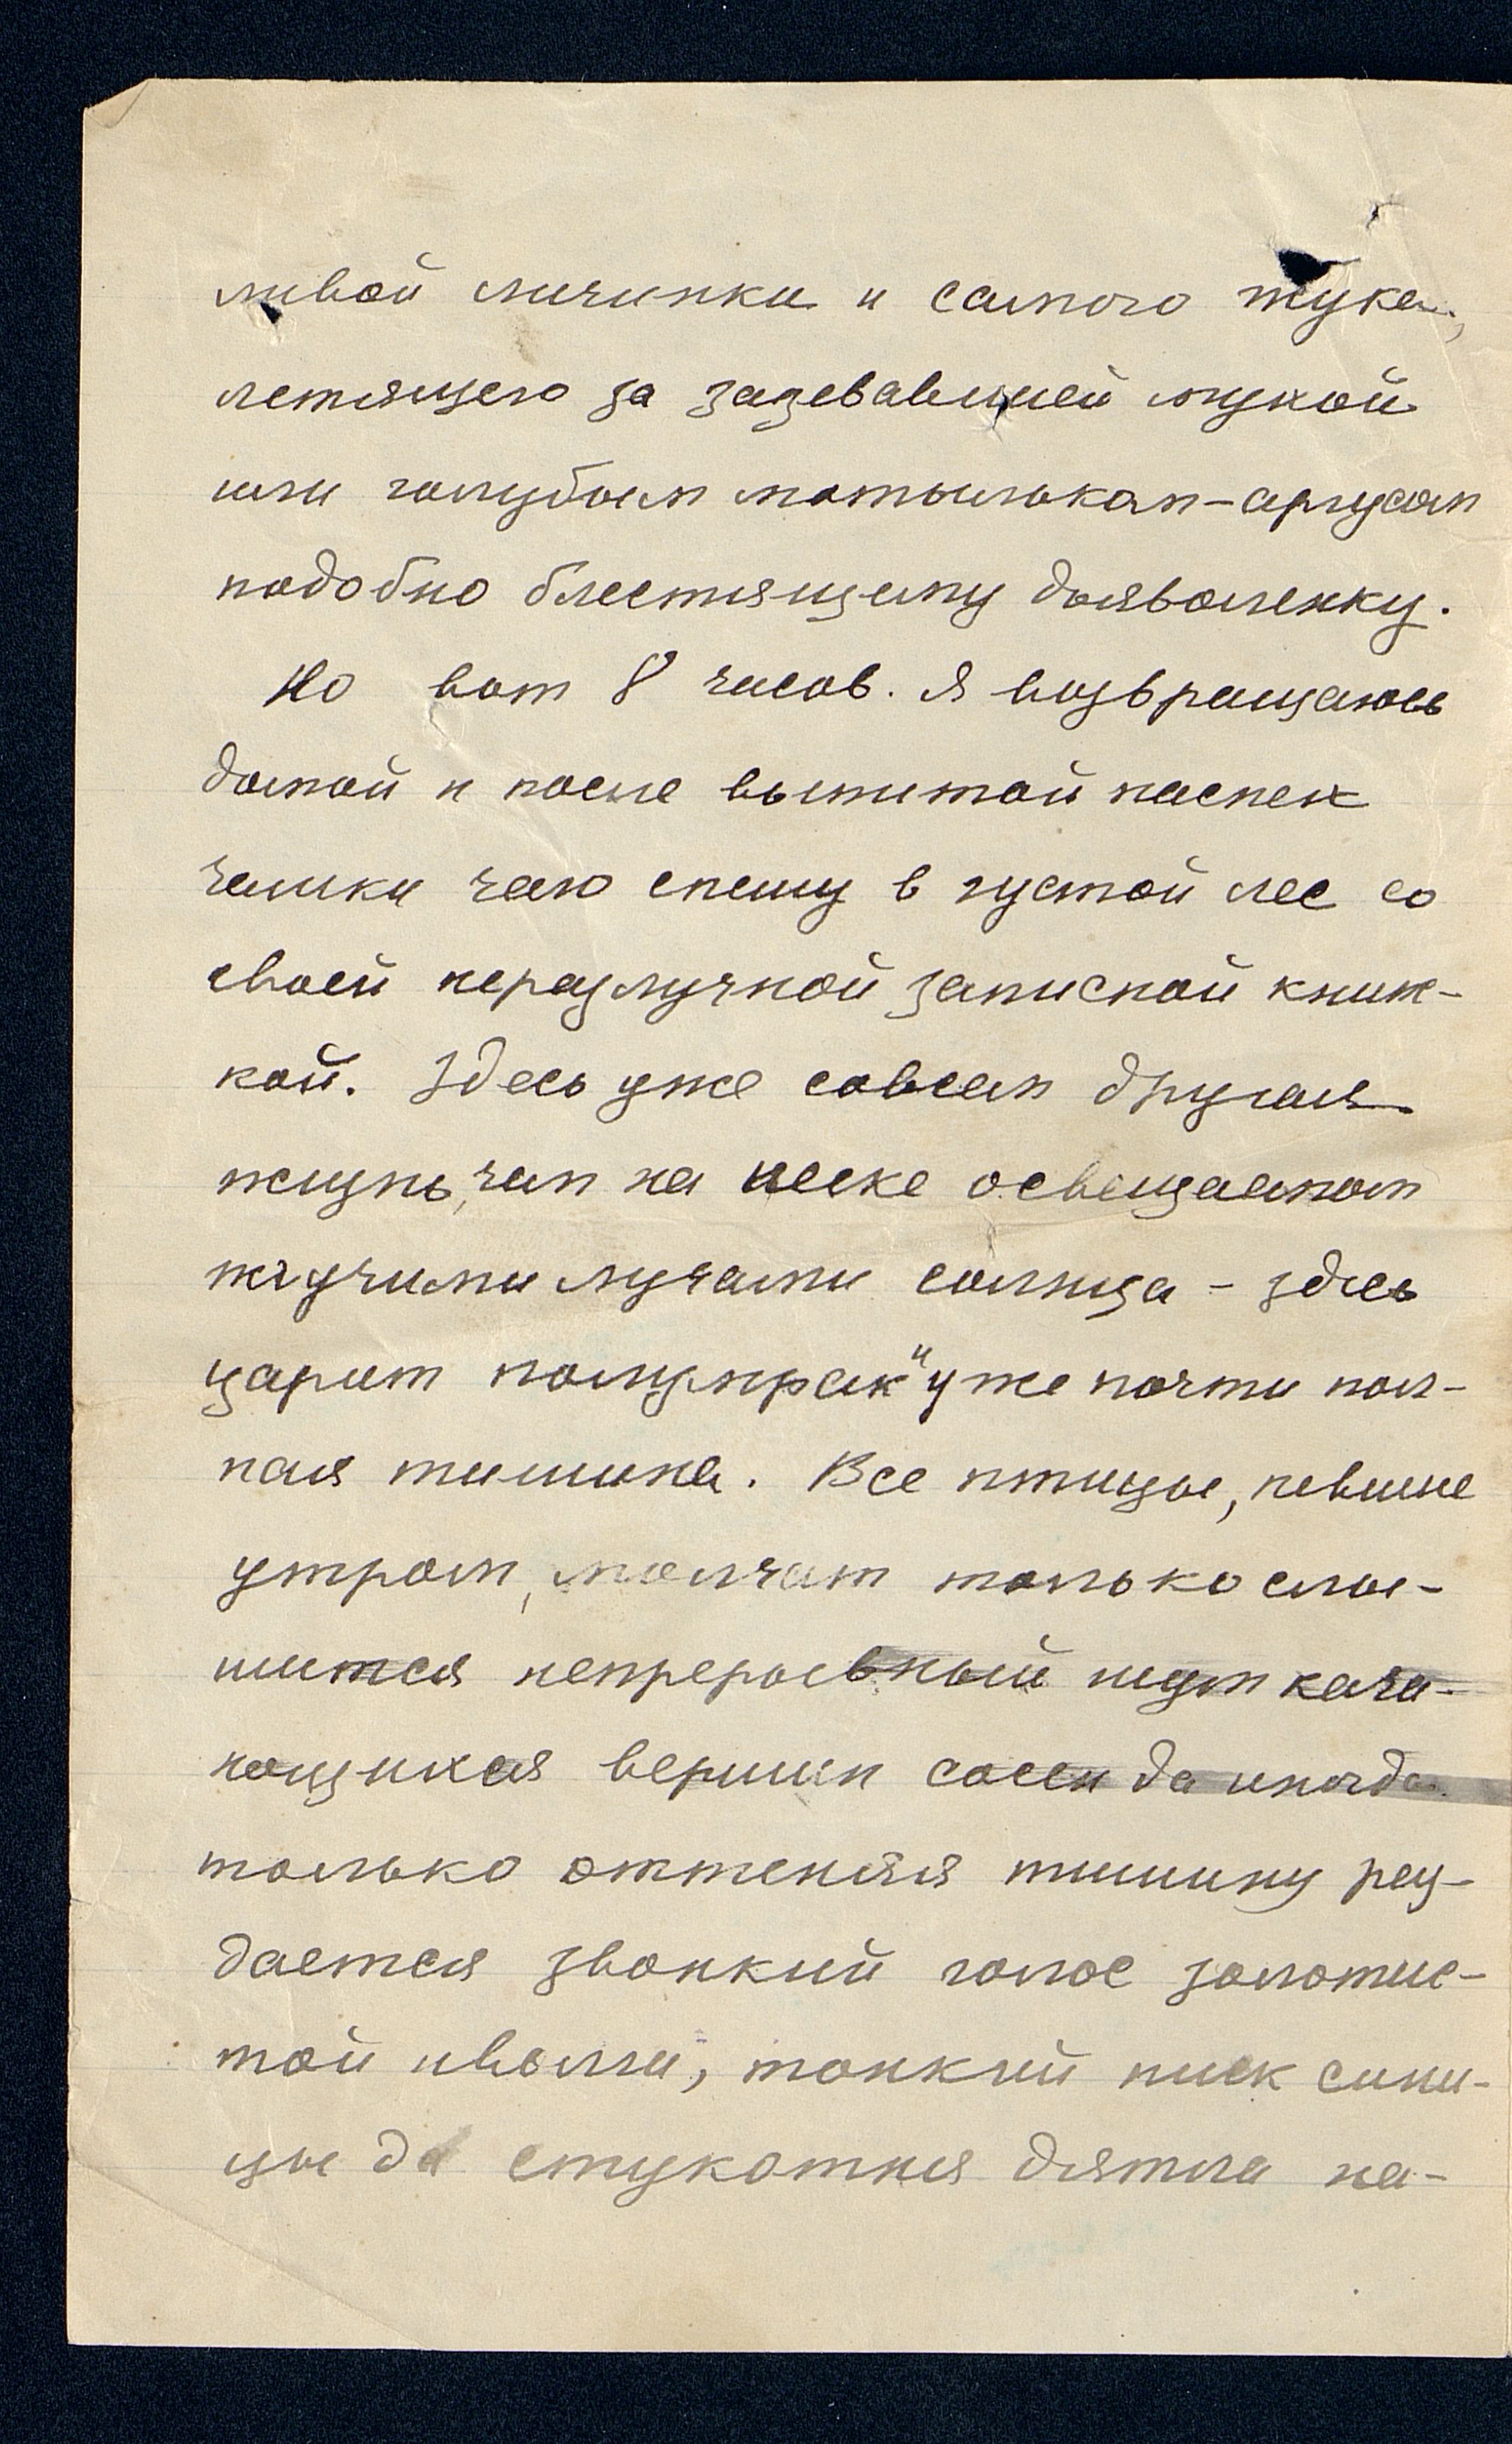 ливой личинки и самого жука,
летящего за зазевавшейся мухой
или голубым мотыльком-аргусом
подобно блестящему дьяволенку.
Но вот 8 часов. Я возвращаюсь
домой и после выпитой наспех
чашки чаю спешу в густой лес со
своей неразлучной записной книж-
кой. Здесь уже совсем другая
жизнь, чем на песке освещаемом
жгучими лучами солнца - здесь
царит полумрак и уже почти пол-
ная тишина. Все птицы, певшие
утром, молчат только слы-
шится непрерывный шум кача-
ющихся вершин сосен да иногда
только оттеняя тишину раз-
дается звонкий голос золотис-
той иволги, тонкий писк сини-
цы да стукотня дятла на-